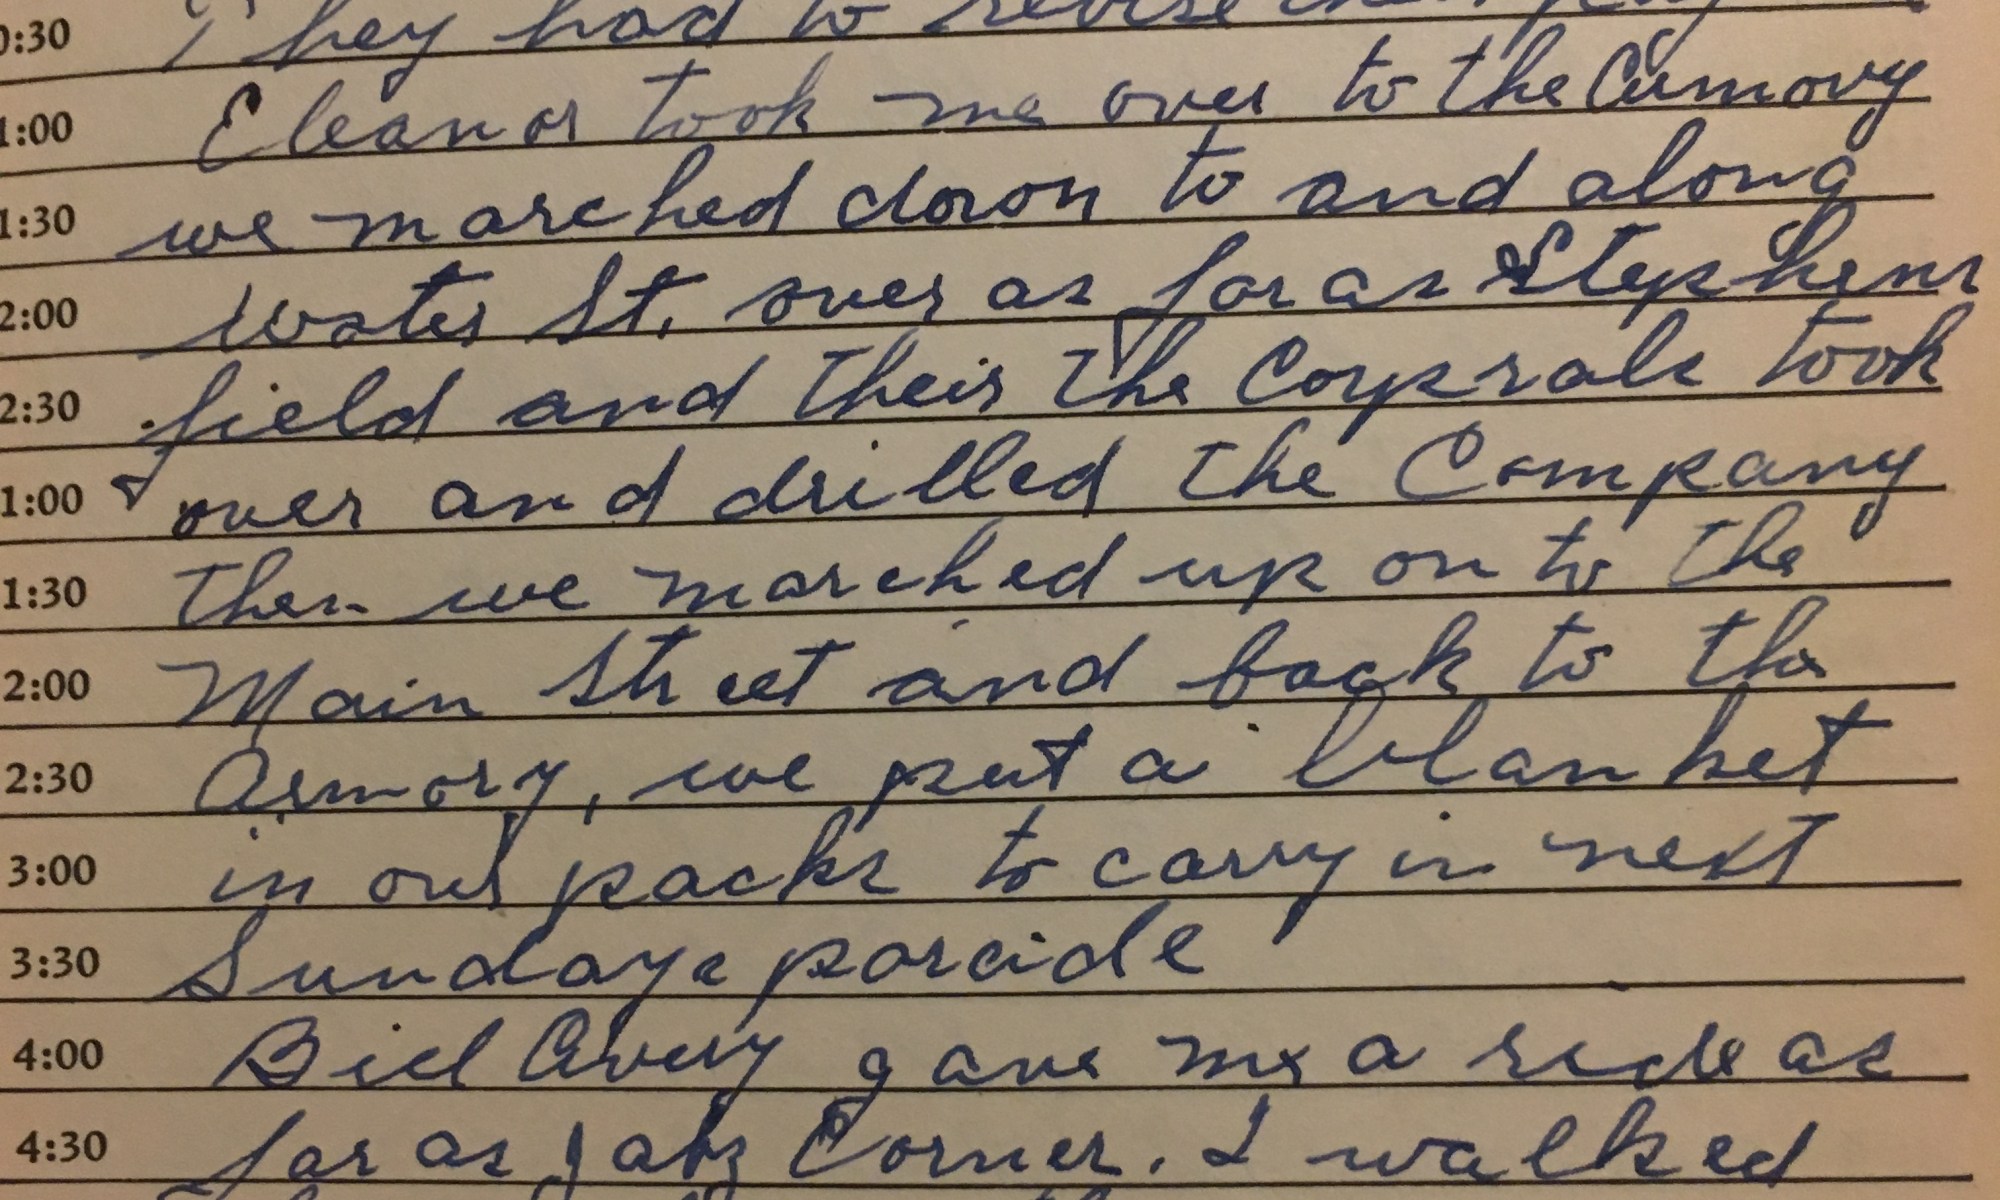 0:30 They had to revise their
1:00 Eleanor took me over to the Armory
1:30 we marched down to and along
2:00 Water St. over as far as Stephens
2:30 field and their the Corprals took
1:00 over and drilled the Company
1:30 then we marched up on to the
2:00 Main Street and back to the
2:30 Armory, we put a blanket
3:00 in our packs to carry in next
3:30 Sundays paraide
4:00 Bill Avery gave me a ride as
4:30 far as Corner. I walked